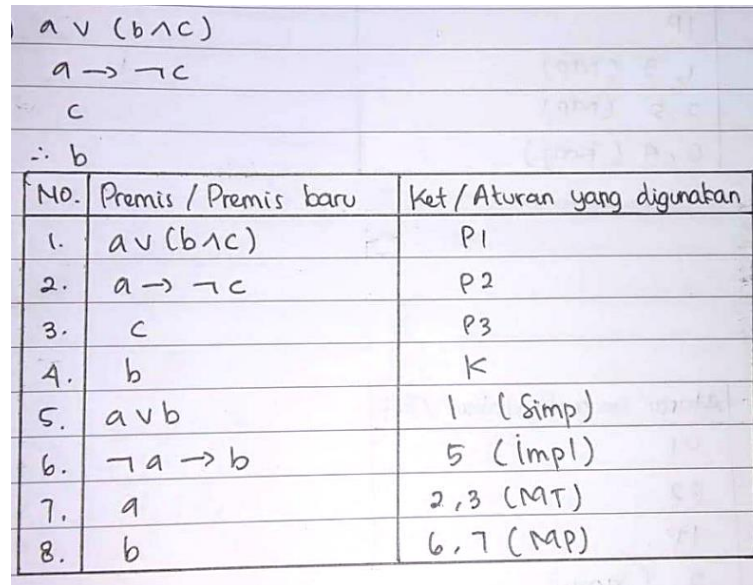 ) a ∨ (b ∧ c)
a → ¬c
c
∴ b
No. Premis / Premis baru Ket / Aturan yang digunakan
1. a ∨ (b ∧ c) P1
2. a → ¬c P2
3. c P3
4. b K
5. a ∨ b 1 (Simp)
6. ¬a → b 5 (impl)
7. a 2,3 (MT)
8. b 6,7 (MP)